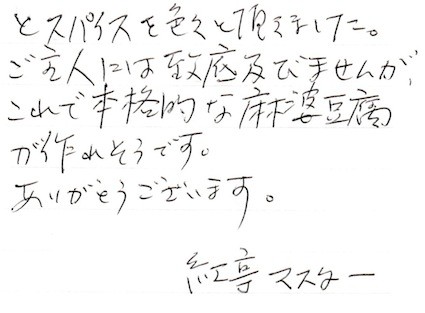 とスパイスを色々と頂きました。
ご主人には到底及びませんが、
これで本格的な麻婆豆腐
が作れそうです。
ありがとうございます。
紅亭 マスター